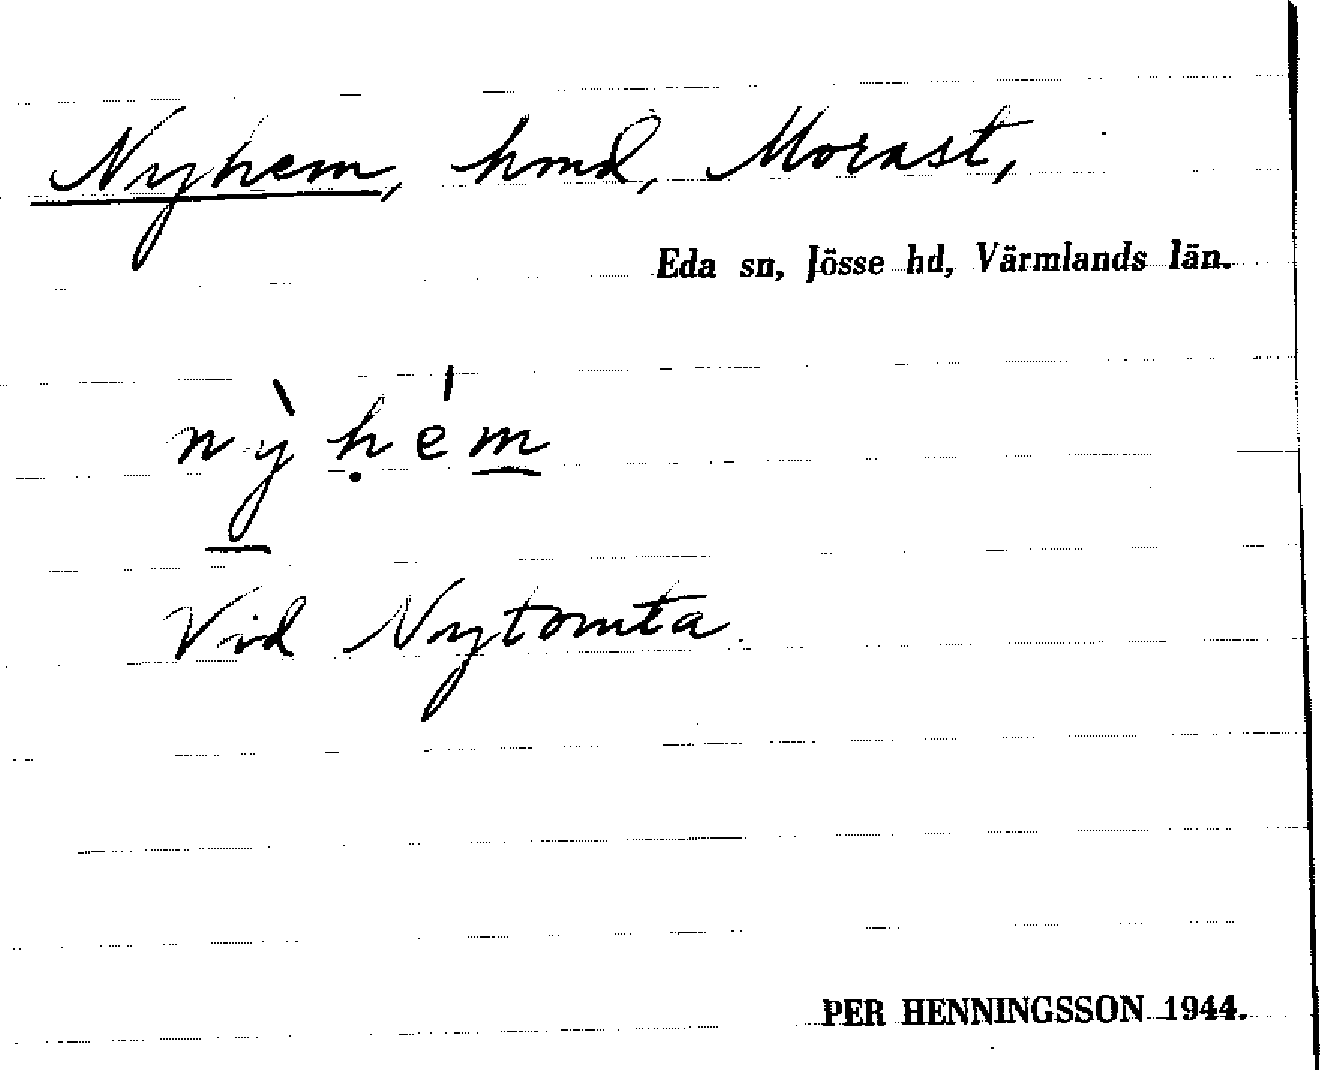 Nyhem, hmd, Morast,
Eda sn, Jösse hd, Värmlands län.
nỳhém
Vid Nytomta.
PER HENNINGSSON 1944.